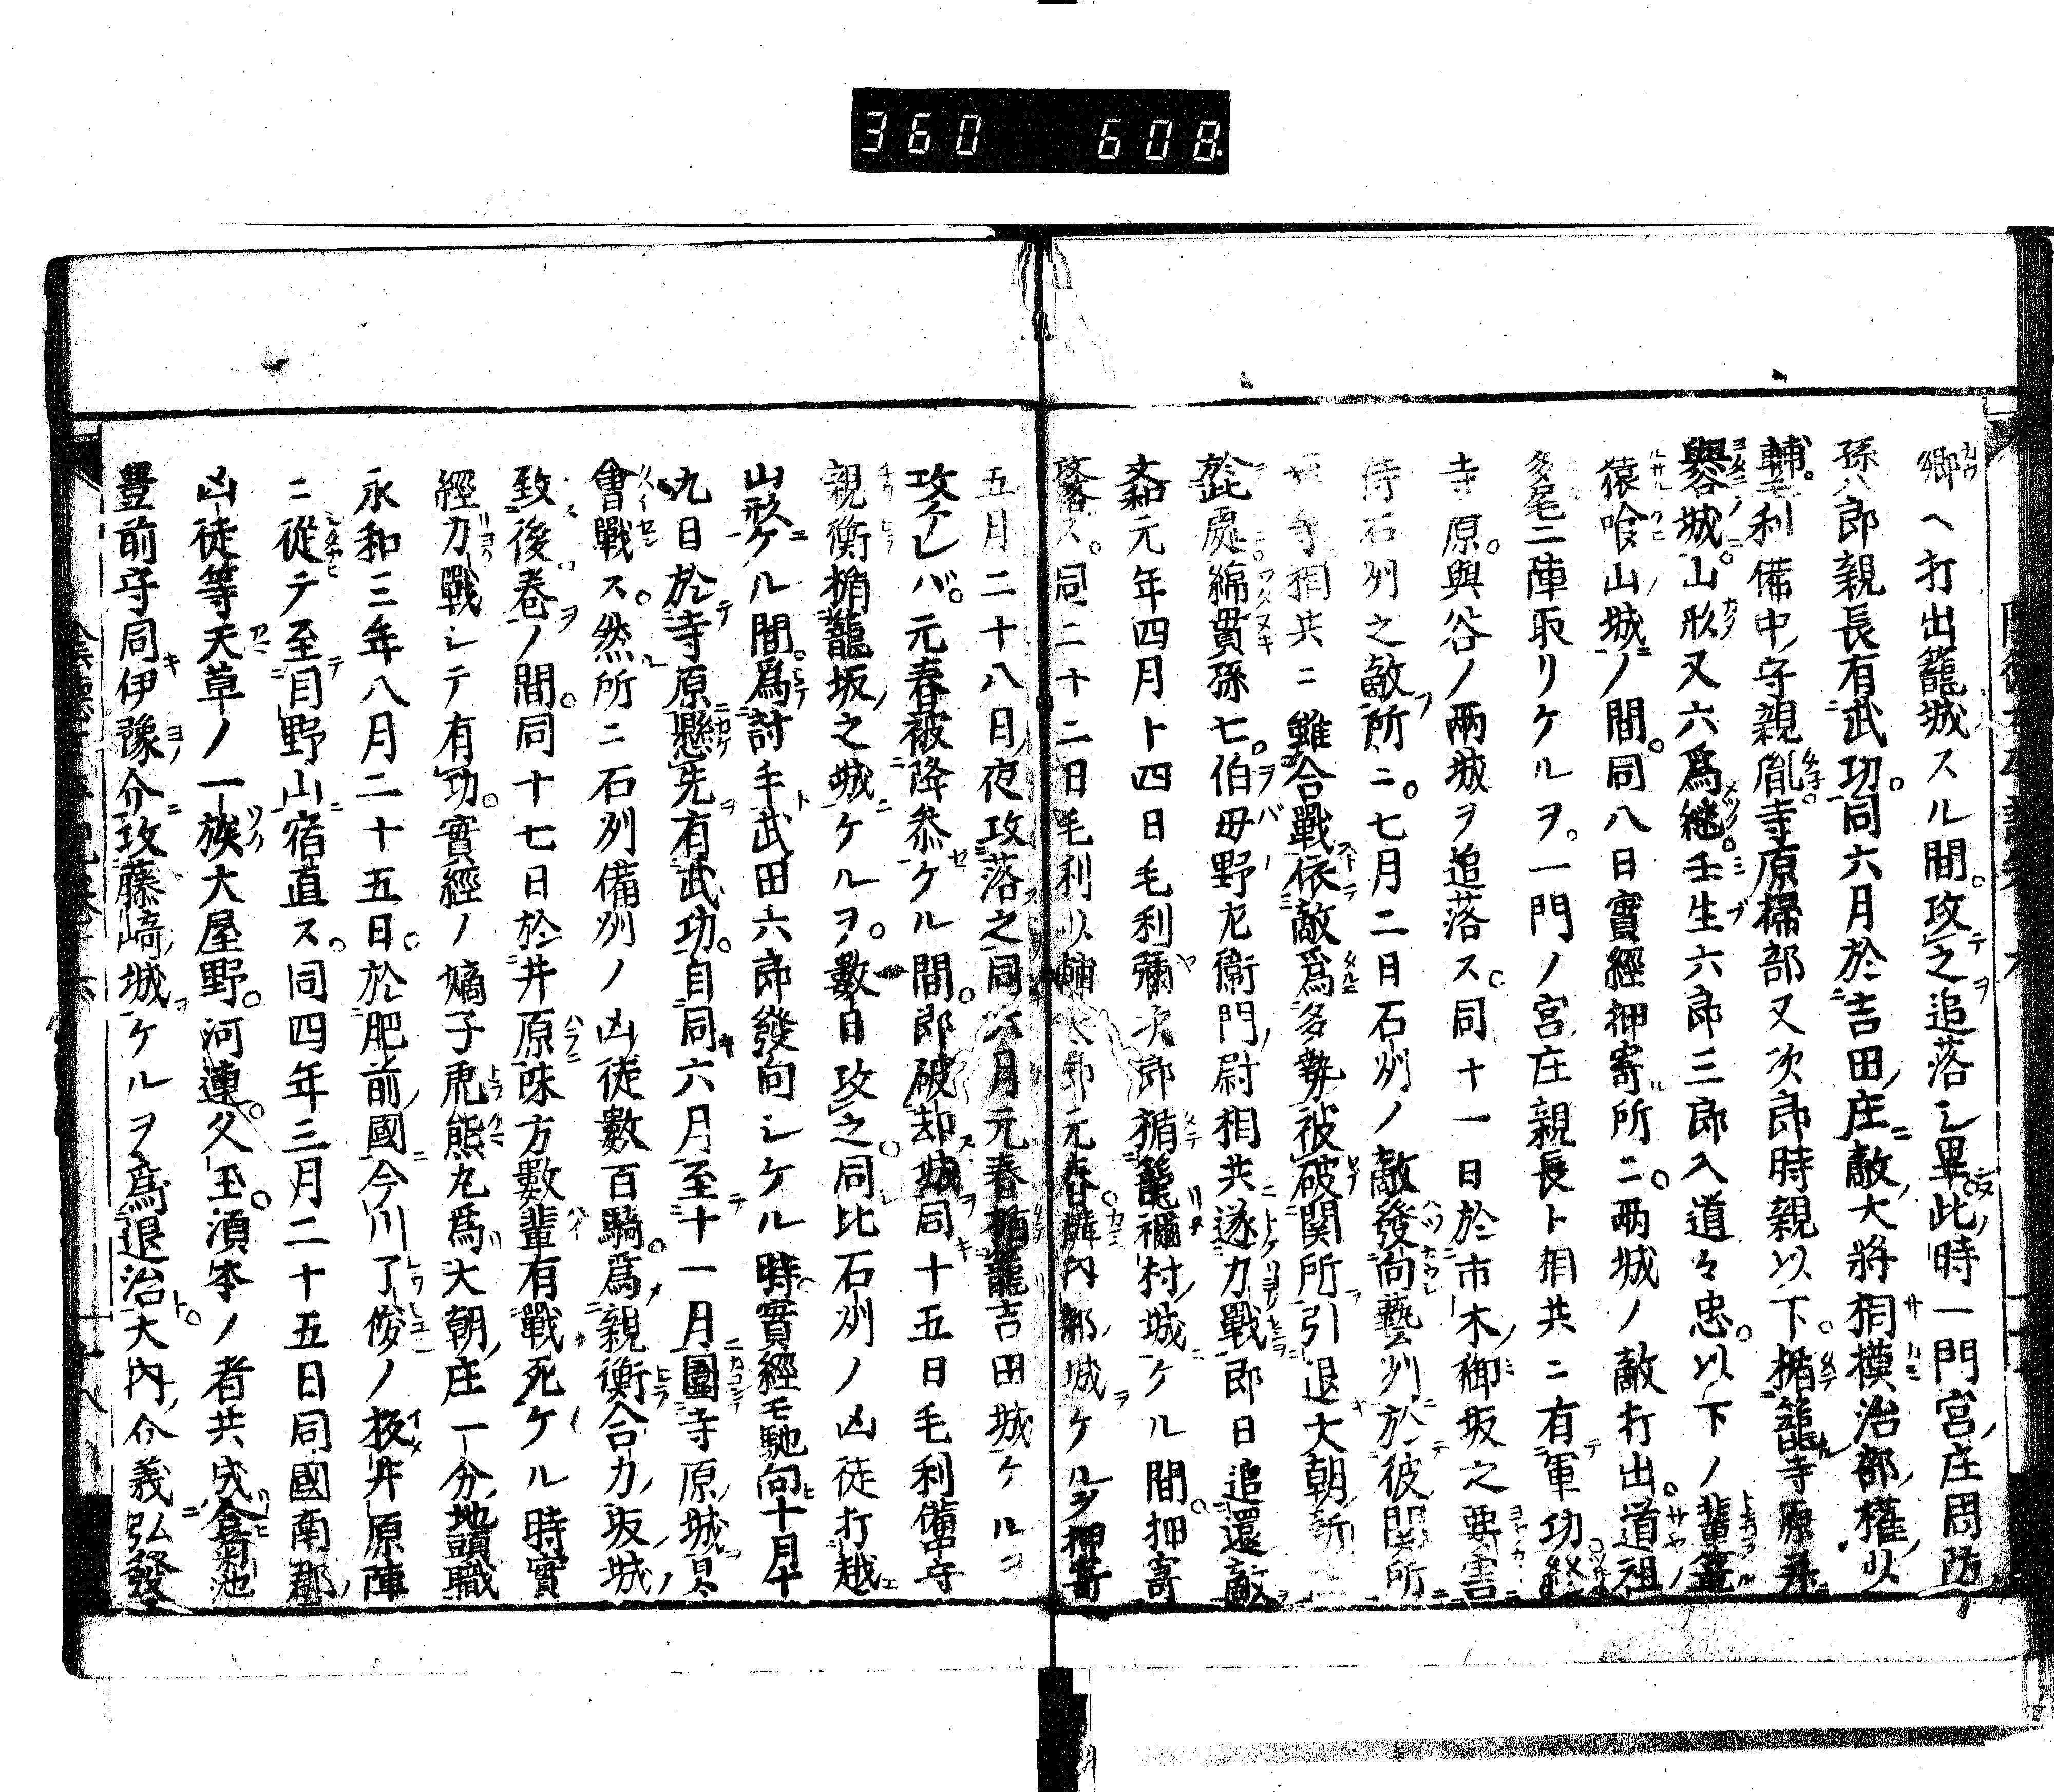 360 608
郷ヘ打出籠城スル間攻之追落シ畢此時一門宮庄周防
孫八郎親長有武功同六月於吉田庄敵大將相摸治部權少
輔毛利備中守親胤寺原掃部又次郎時親以下楯籠寺原并
與谷城山形又六爲継壬生六郎三郎入道々忠以下ノ輩籠
猿喰山城ノ間同八日實經押寄所ニ兩城ノ敵打出道祖
多尾二陣取リケルヲ一門ノ宮庄親長ト相共ニ有軍功終
寺原與谷ノ兩城ヲ追落ス同十一日於市木御坂之要害
侍石州之敵所ニ七月二日石州ノ敵發向藝州於彼関所
寺相共ニ雖合戰依敵爲多勢被破関所引退大朝新
於此處綿貫孫七伯母野左衞門尉相共遂力戰郎日追還敵
文和元年四月卜四日毛利彌次郎楯籠禰村城ケル間押寄
攻落ス同二十二日毛利少輔太郎元春構内部城ケルヲ押寄
五月二十八日夜攻落之同六月元春楯籠吉田城ケルヲ
攻ケレバ元春被降參ケル間郎破却城同十五日毛利備中守
親衡楯籠坂之城ケルヲ數日攻之同比石州ノ凶徒打越
山形ケル間爲討手武田六郎發向シケル時實經モ馳向十月十
九日於寺原懸先有武功自同六月至十一月圍寺原城
會戰ス然所ニ石州備州ノ凶徒數百騎爲親衡合力坂城
致後卷ノ間同十七日於井原味方數輩有戰死ケル時實
經力戰シテ有功實經ノ嫡子虎熊丸爲大朝庄一分地頭職
永和三年八月二十五日於肥前國今川了俊ノ板井原陣
ニ從テ至目野山宿直ス同四年三月二十五日同國南郡
凶徒等天草ノ一族大屋野河連久玉湏本ノ者共成合菊池
豊前守同伊豫介攻藤﨑城ケルヲ爲退治大内介義弘發